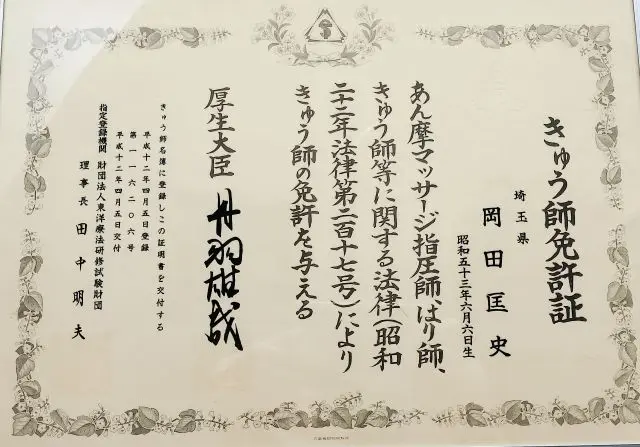 きゅう師免許証
埼玉県
岡田匡史
昭和五十三年六月六日生
あん摩マッサージ指圧師、はり師、
きゅう師等に関する法律(昭和
二十二年法律第二百十七号)により
きゅう師の免許を与える
厚生大臣 丹羽雄哉
きゅう師名簿に登録しこの証明書を交付する
平成十二年四月五日登録
第一一六二〇六号
平成十二年四月五日交付
指定登録機関 財団法人東洋療法研修試験財団
理事長 田中明夫